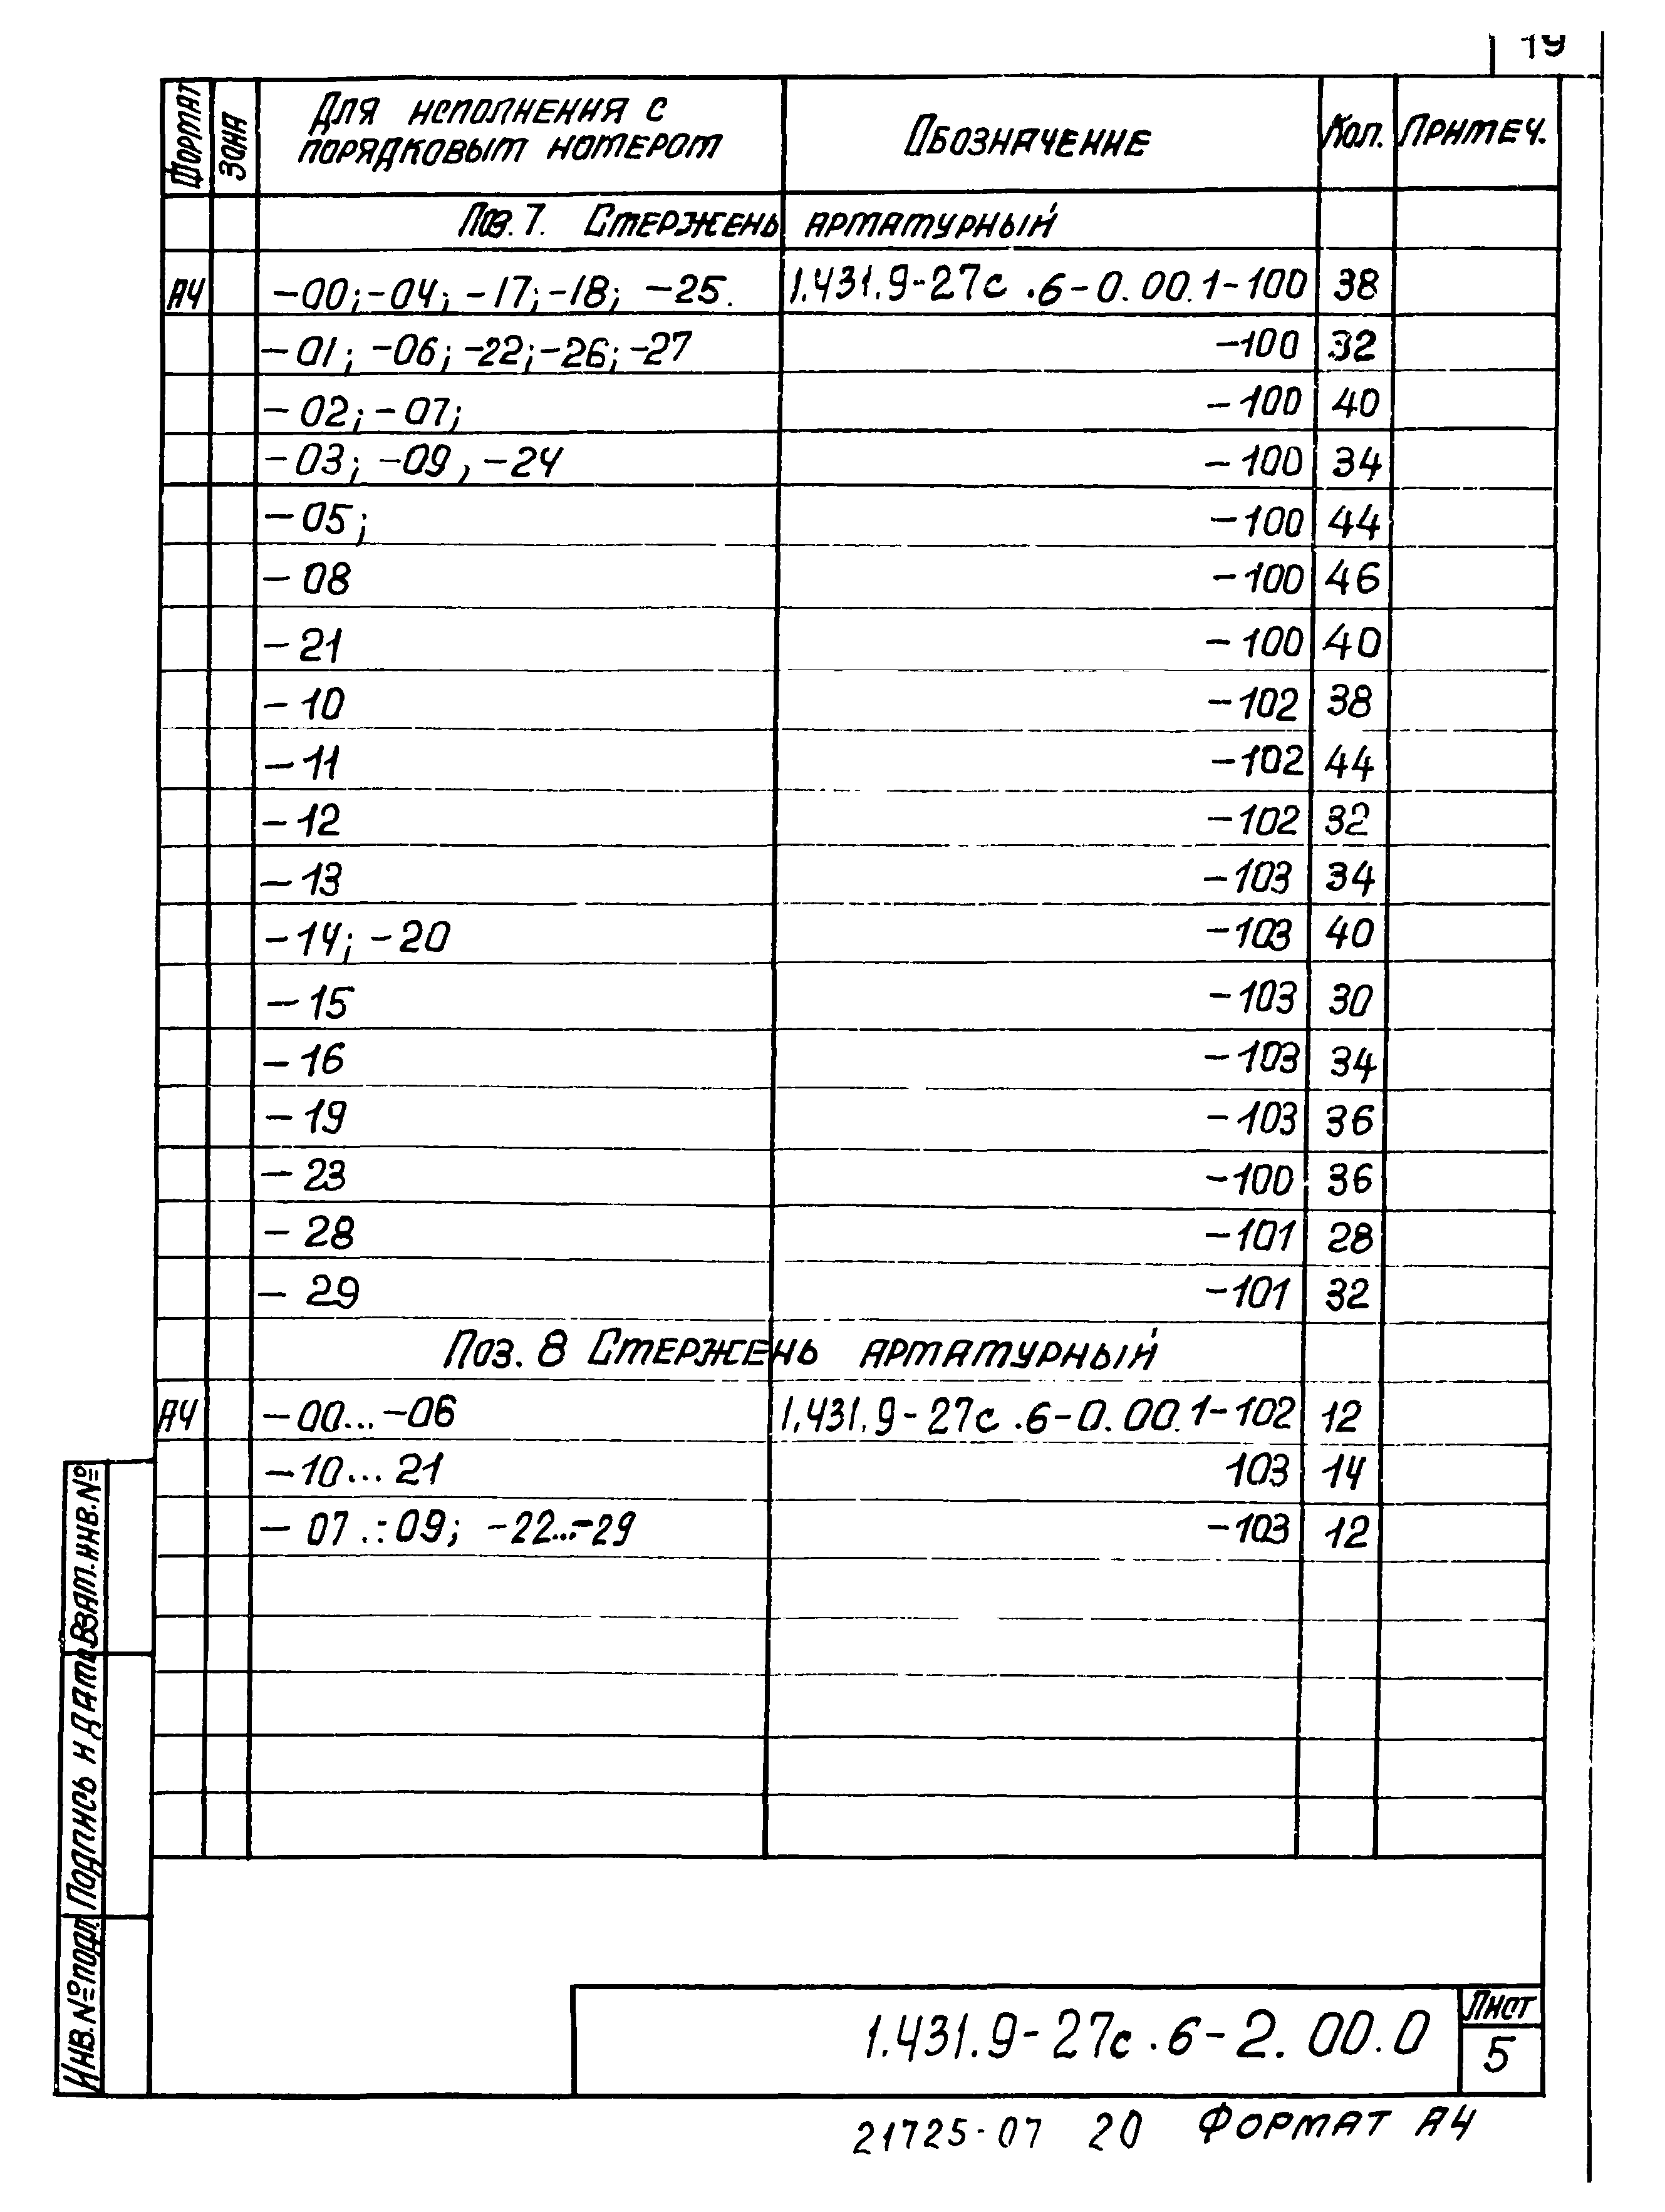 19
Формат
Зона
Для исполнения с
порядковым номером
Обозначение
Кол.
Примеч.
Поз. 7. Стержень арматурный
А4 -00; -04; -17; -18; -25. 1.431.9-27с.6-0.00.1-100 38
-01; -06; -22; -26; -27 -100 32
-02; -07; -100 40
-03; -09, -24 -100 34
-05; -100 44
-08 -100 46
-21 -100 40
-10 -102 38
-11 -102 44
-12 -102 32
-13 -103 34
-14; -20 -103 40
-15 -103 30
-16 -103 34
-19 -103 36
-23 -100 36
-28 -101 28
-29 -101 32
Поз. 8 Стержень арматурный
А4 -00...-06 1.431.9-27с.6-0.00.1-102 12
-10...21 103 14
-07...09; -22...-29 -103 12
Взам. инв. №
Подпись и дата
Инв. № подл.
1.431.9-27с.6-2.00.0
Лист
5
21725-07 20 Формат А4